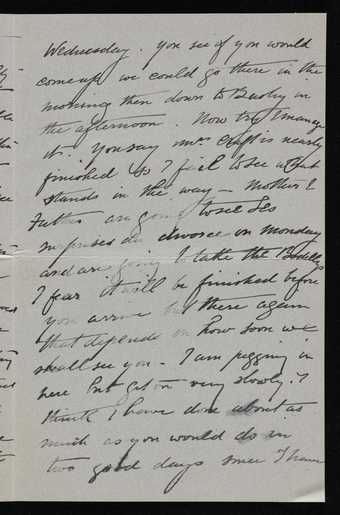 Wednesday. You see if you would
come up we could go there in the
morning then down to Bushy in
the afternoon. Now try & manage
it. You say Mrs. Craft is nearly
finished so I fail to see what
stands in the way — Mother &
Father are going to see Les
surprises du divorce on Monday
and are going to take the
I fear it will be finished before
you arrive but there again
that depends on how soon we
shall see you — I am pegging in
here but get on very slowly. I
think I have done about as
much as you would do in
two good days since I have